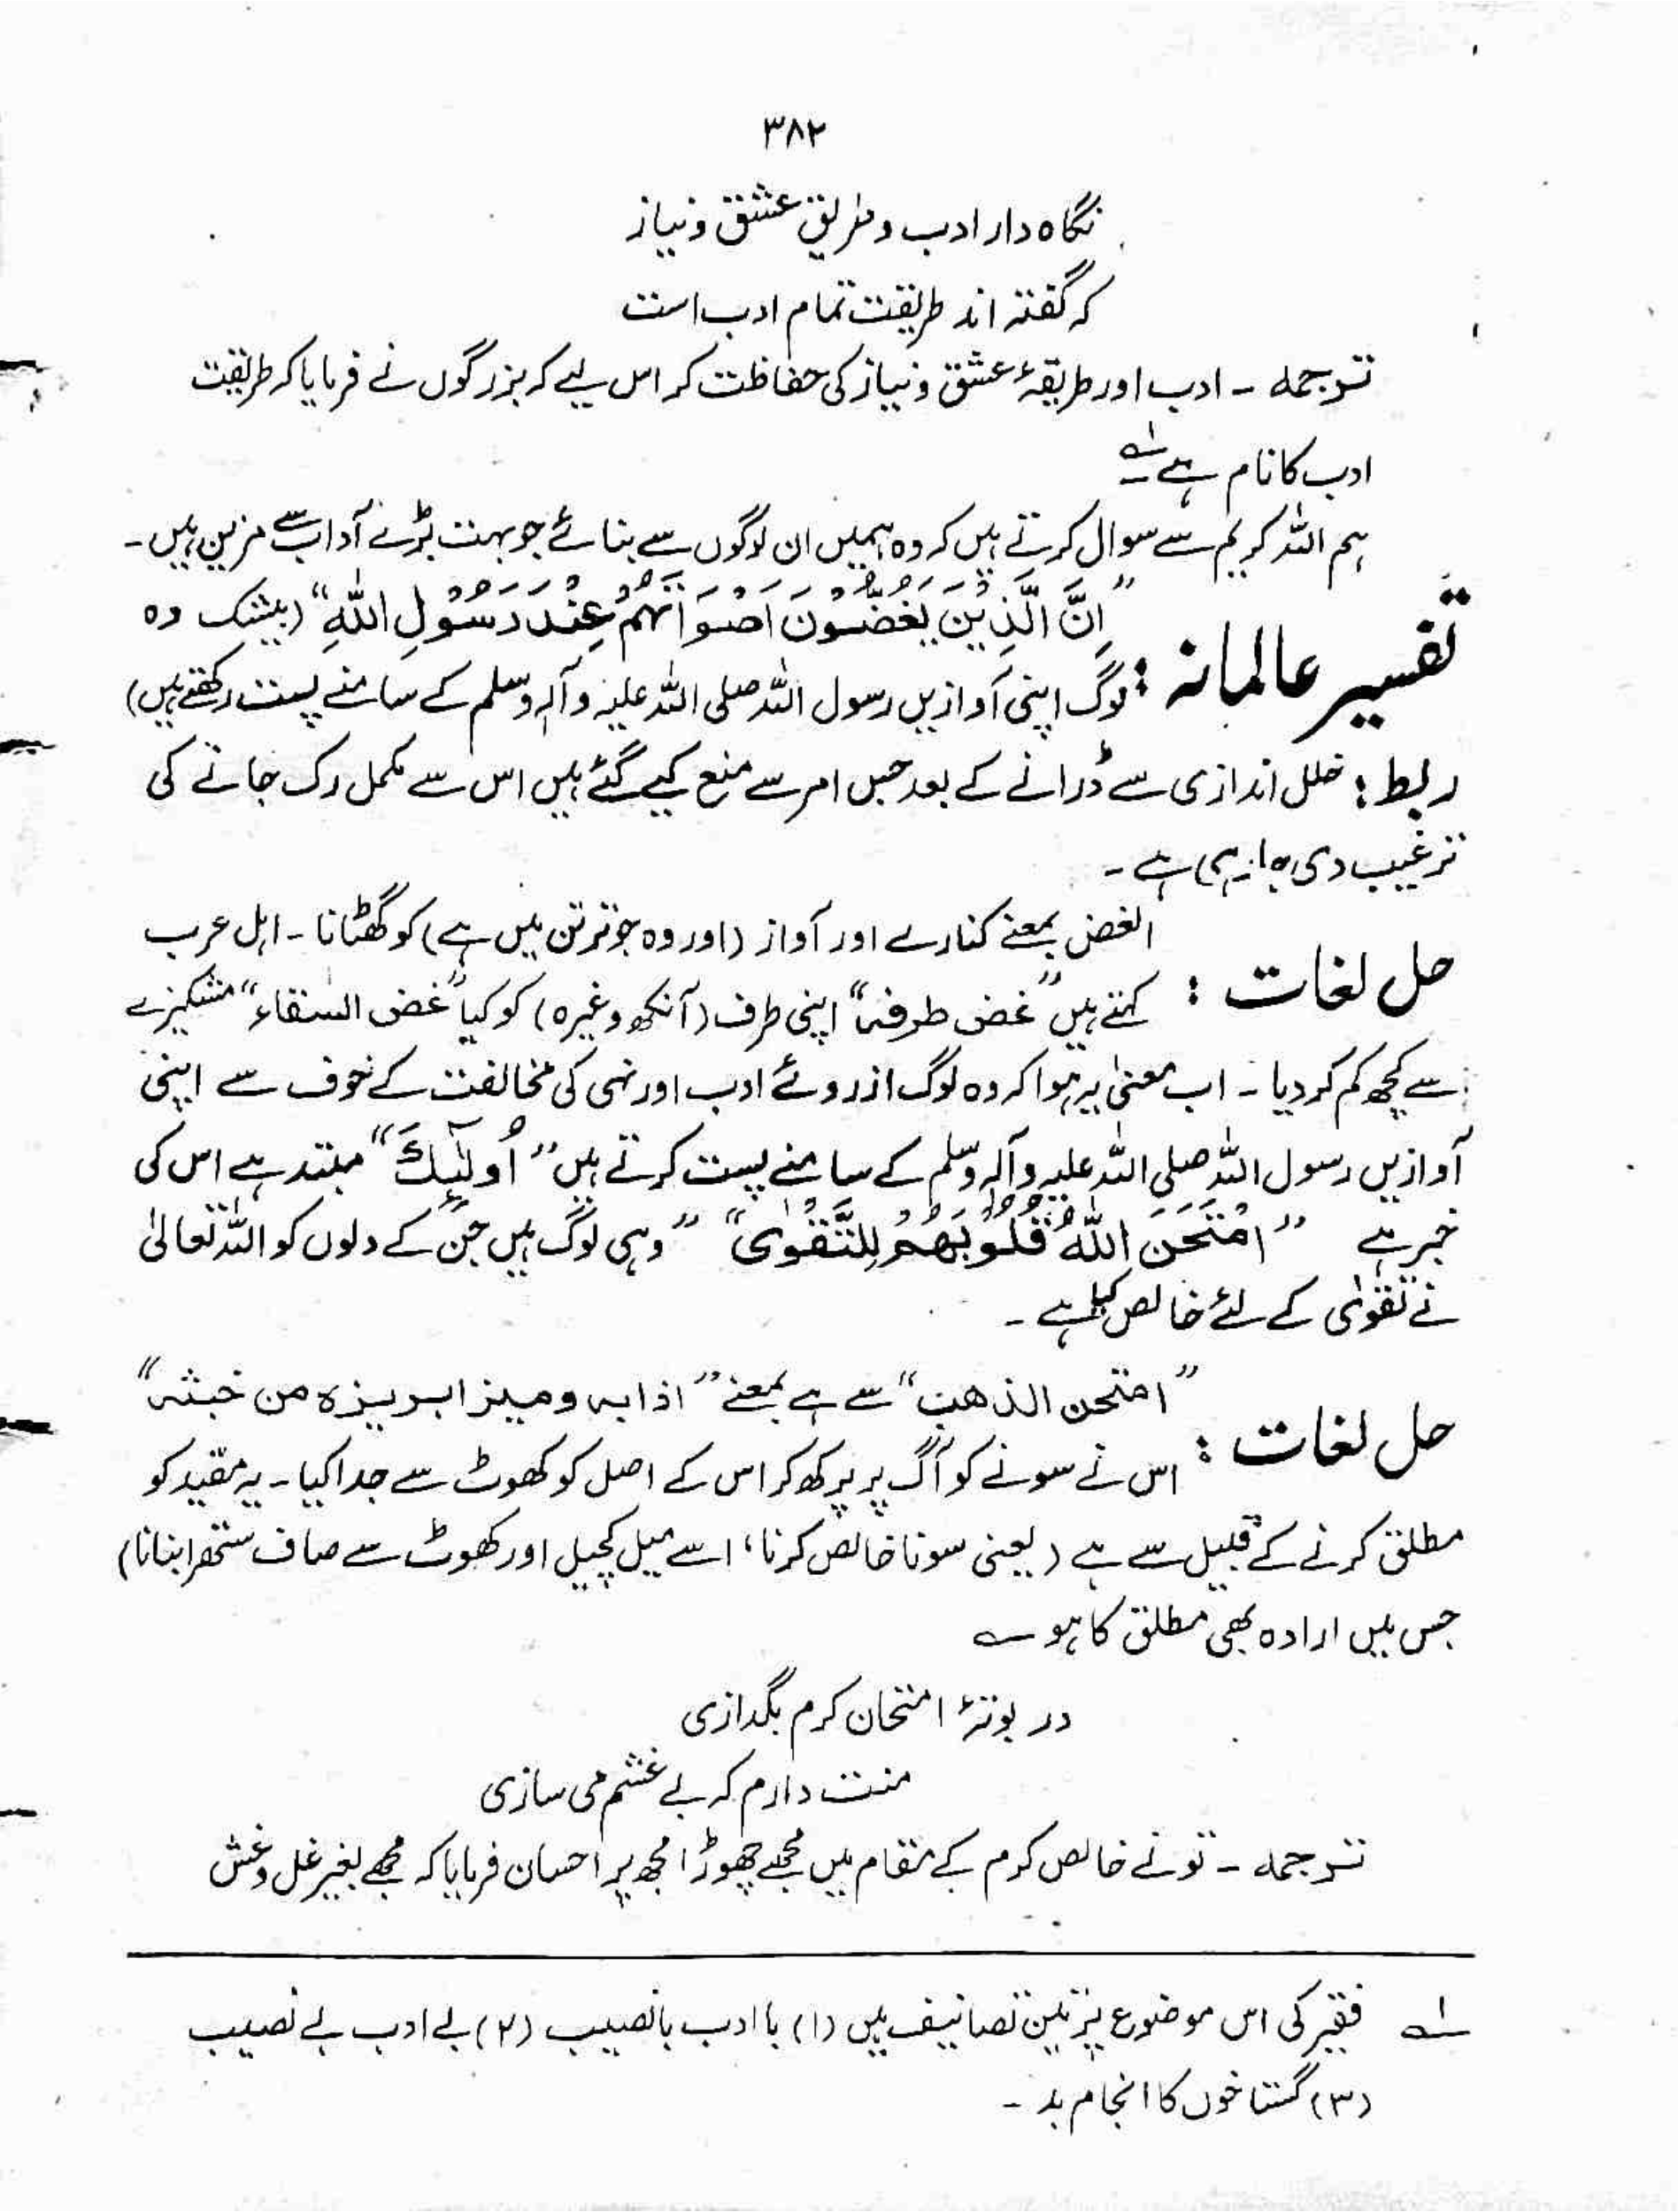 ۳۸۲
نگاہ دار ادب و طریق عشق و نیاز
کہ گفتہ اند طریقت تمام ادب است
ترجمہ ۔ ادب اور طریقۂ عشق و نیاز کی حفاظت کر اس لیے کہ بزرگوں نے فرمایا کہ طریقت
ادب کا نام ہے ؎۱
ہم اللہ کریم سے سوال کرتے ہیں کہ وہ ہمیں ان لوگوں سے بنائے جو بہت بڑے آداب سے مزین ہیں۔
تفسیر عالمانہ : "اِنَّ الَّذِیْنَ یَغُضُّوْنَ اَصْوَاتَهُمْ عِنْدَ رَسُوْلِ اللّٰهِ" (بیشک وہ
لوگ اپنی آوازیں رسول اللہ صلی اللہ علیہ وآلہ وسلم کے سامنے پست رکھتے ہیں)
ربط : خلل اندازی سے ڈرانے کے بعد جس امر سے منع کیے گئے ہیں اس سے مکمل رک جانے کی
ترغیب دی جا رہی ہے۔
حل لغات : الغض بمعنے کنارے اور آواز (اور وہ جو ترتن میں ہے) کو گھٹانا ۔ اہل عرب
کہتے ہیں "غض طرفہ" اپنی طرف (آنکھ وغیرہ) کو کیا "غض السقاء" مشکیزے
سے کچھ کم کر دیا ۔ اب معنیٰ یہ ہوا کہ وہ لوگ از روئے ادب اور نہی کی مخالفت کے خوف سے اپنی
آوازیں رسول اللہ صلی اللہ علیہ وآلہ وسلم کے سامنے پست کرتے ہیں "اُولٰٓئِكَ" مبتدہے اس کی
خبر ہے "امْتَحَنَ اللّٰهُ قُلُوْبَهُمْ لِلتَّقْوٰی" "وہی لوگ ہیں جن کے دلوں کو اللہ تعالیٰ
نے تقوٰی کے لئے خالص کیا ہے۔
حل لغات : "امتحن الذهب" سے ہے بمعنے "اذابہ ومیز ابریزہ من خبثہ"
اس نے سونے کو آگ پر پرکھ کر اس کے اصل کو کھوٹ سے جدا کیا ۔ یہ مقید کو
مطلق کرنے کے قبیل سے ہے (یعنی سونا خالص کرنا، اسے میل کچیل اور کھوٹ سے صاف ستھرا بنانا)
جس میں ارادہ بھی مطلق کا ہو ؎
در بوتۂ امتحان کرم بگدازی
منت دارم کہ بے غشم می سازی
ترجمہ ۔ تو نے خالص کرم کے مقام میں مجھے چھوڑا مجھ پر احسان فرمایا کہ مجھے بغیر غل و غش
؎۱ فقیر کی اس موضوع پر تین تصانیف ہیں (۱) با ادب با نصیب (۲) بے ادب بے نصیب
(۳) گستاخوں کا انجام بد ۔